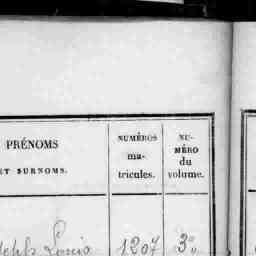 PRÉNOMS
ET SURNOMS.
NUMÉROS
ma-
tricules.
NU-
MÉRO
du
volume.
seph Louis 1207 3º